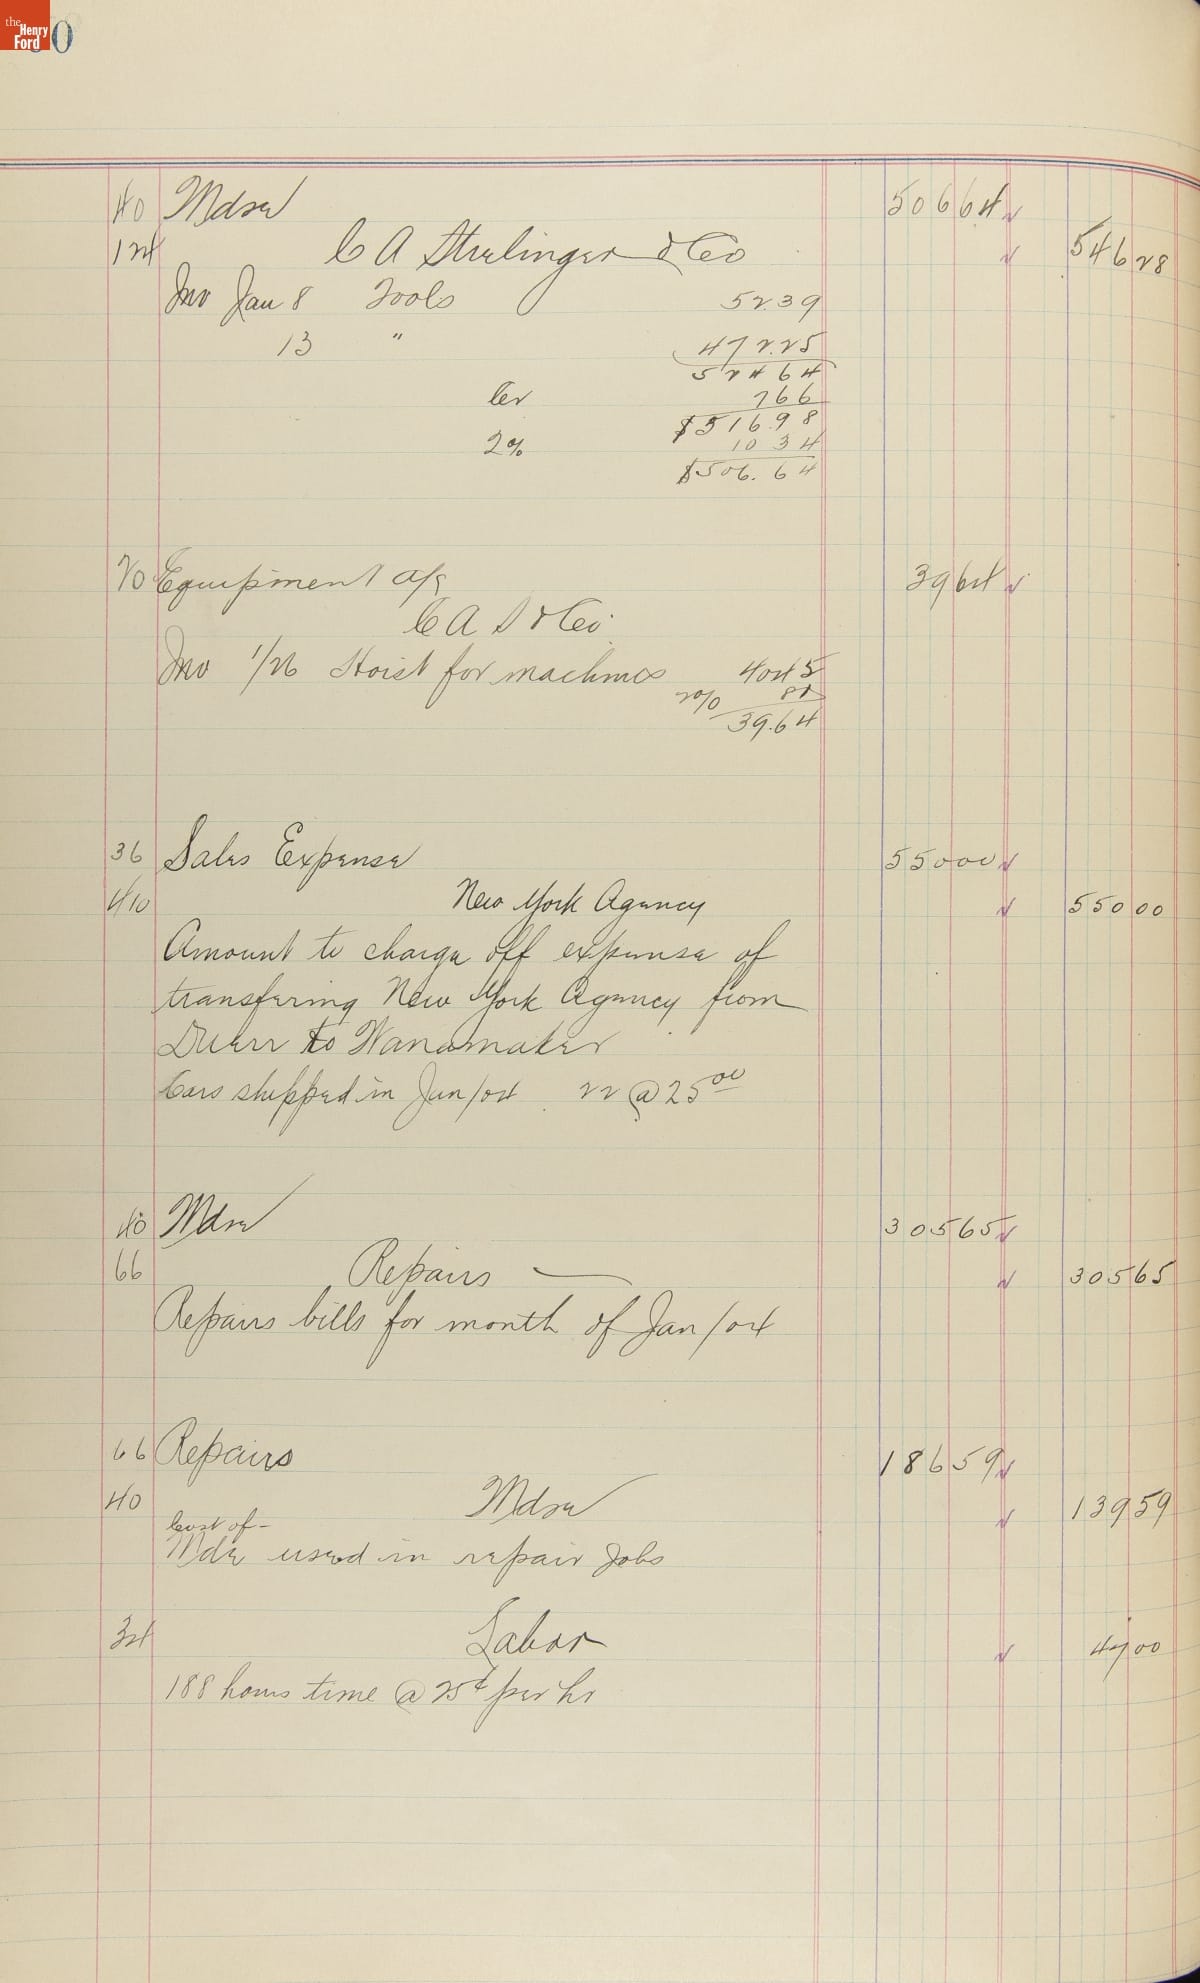 the Henry Ford
0
40 Mdse 506 64
124 C A Strelinger & Co 546 28
Inv Jan 8 Tools 52.39
13 " 472.25
524 64
Cr 7 66
$516.98
2% 10 34
$506.64
70 Equipment a/c 39 64
C A S & Co
Inv 1/26 Hoist for machines 40 45
2% 81
39.64
36 Sales Expense 550 00
410 New York Agency 550 00
Amount to charge off expense of
transfering New York Agency from
Duerr to Wanamaker
Cars shipped in Jan/04 22 @ 25 00
40 Mdse 305 65
66 Repairs 305 65
Repairs bills for month of Jan/04
66 Repairs 186 59
40 Mdse 139 59
Cost of
Mdse used in repair Jobs
34 Labor 47 00
188 hours time @ 25¢ per hr